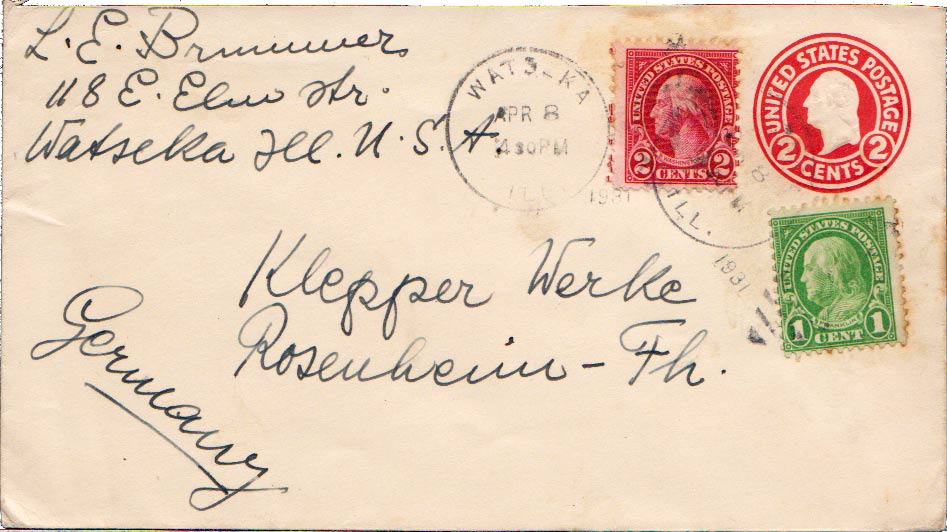 L. E. Brummer
118 E. Elm Str.
Watseka Ill. U. S. A.
WATSEKA
APR 8
4 30PM
ILL.
1931
UNITED STATES POSTAGE
WASHINGTON
2 CENTS 2
UNITED STATES POSTAGE
2 CENTS 2
8
PM
ILL.
1931
UNITED STATES POSTAGE
FRANKLIN
1 CENT 1
Klepper Werke
Rosenheim - Th.
Germany